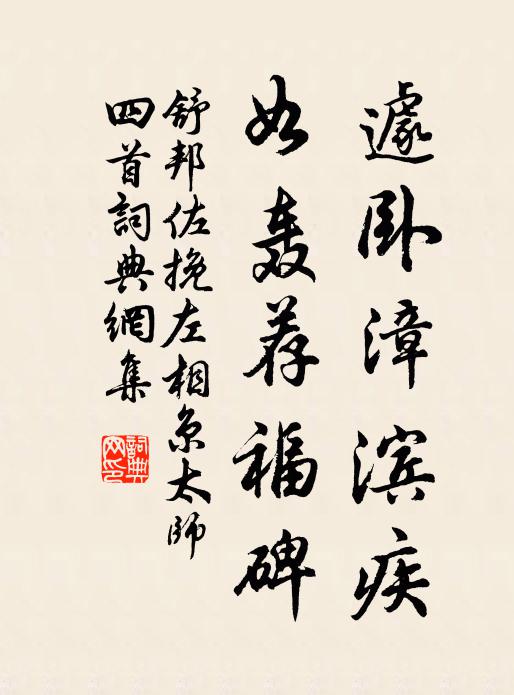 遽卧漳滨疾
如轰荐福碑
舒邦佐挽左相京太師
四首詞典網集
詞典
网印